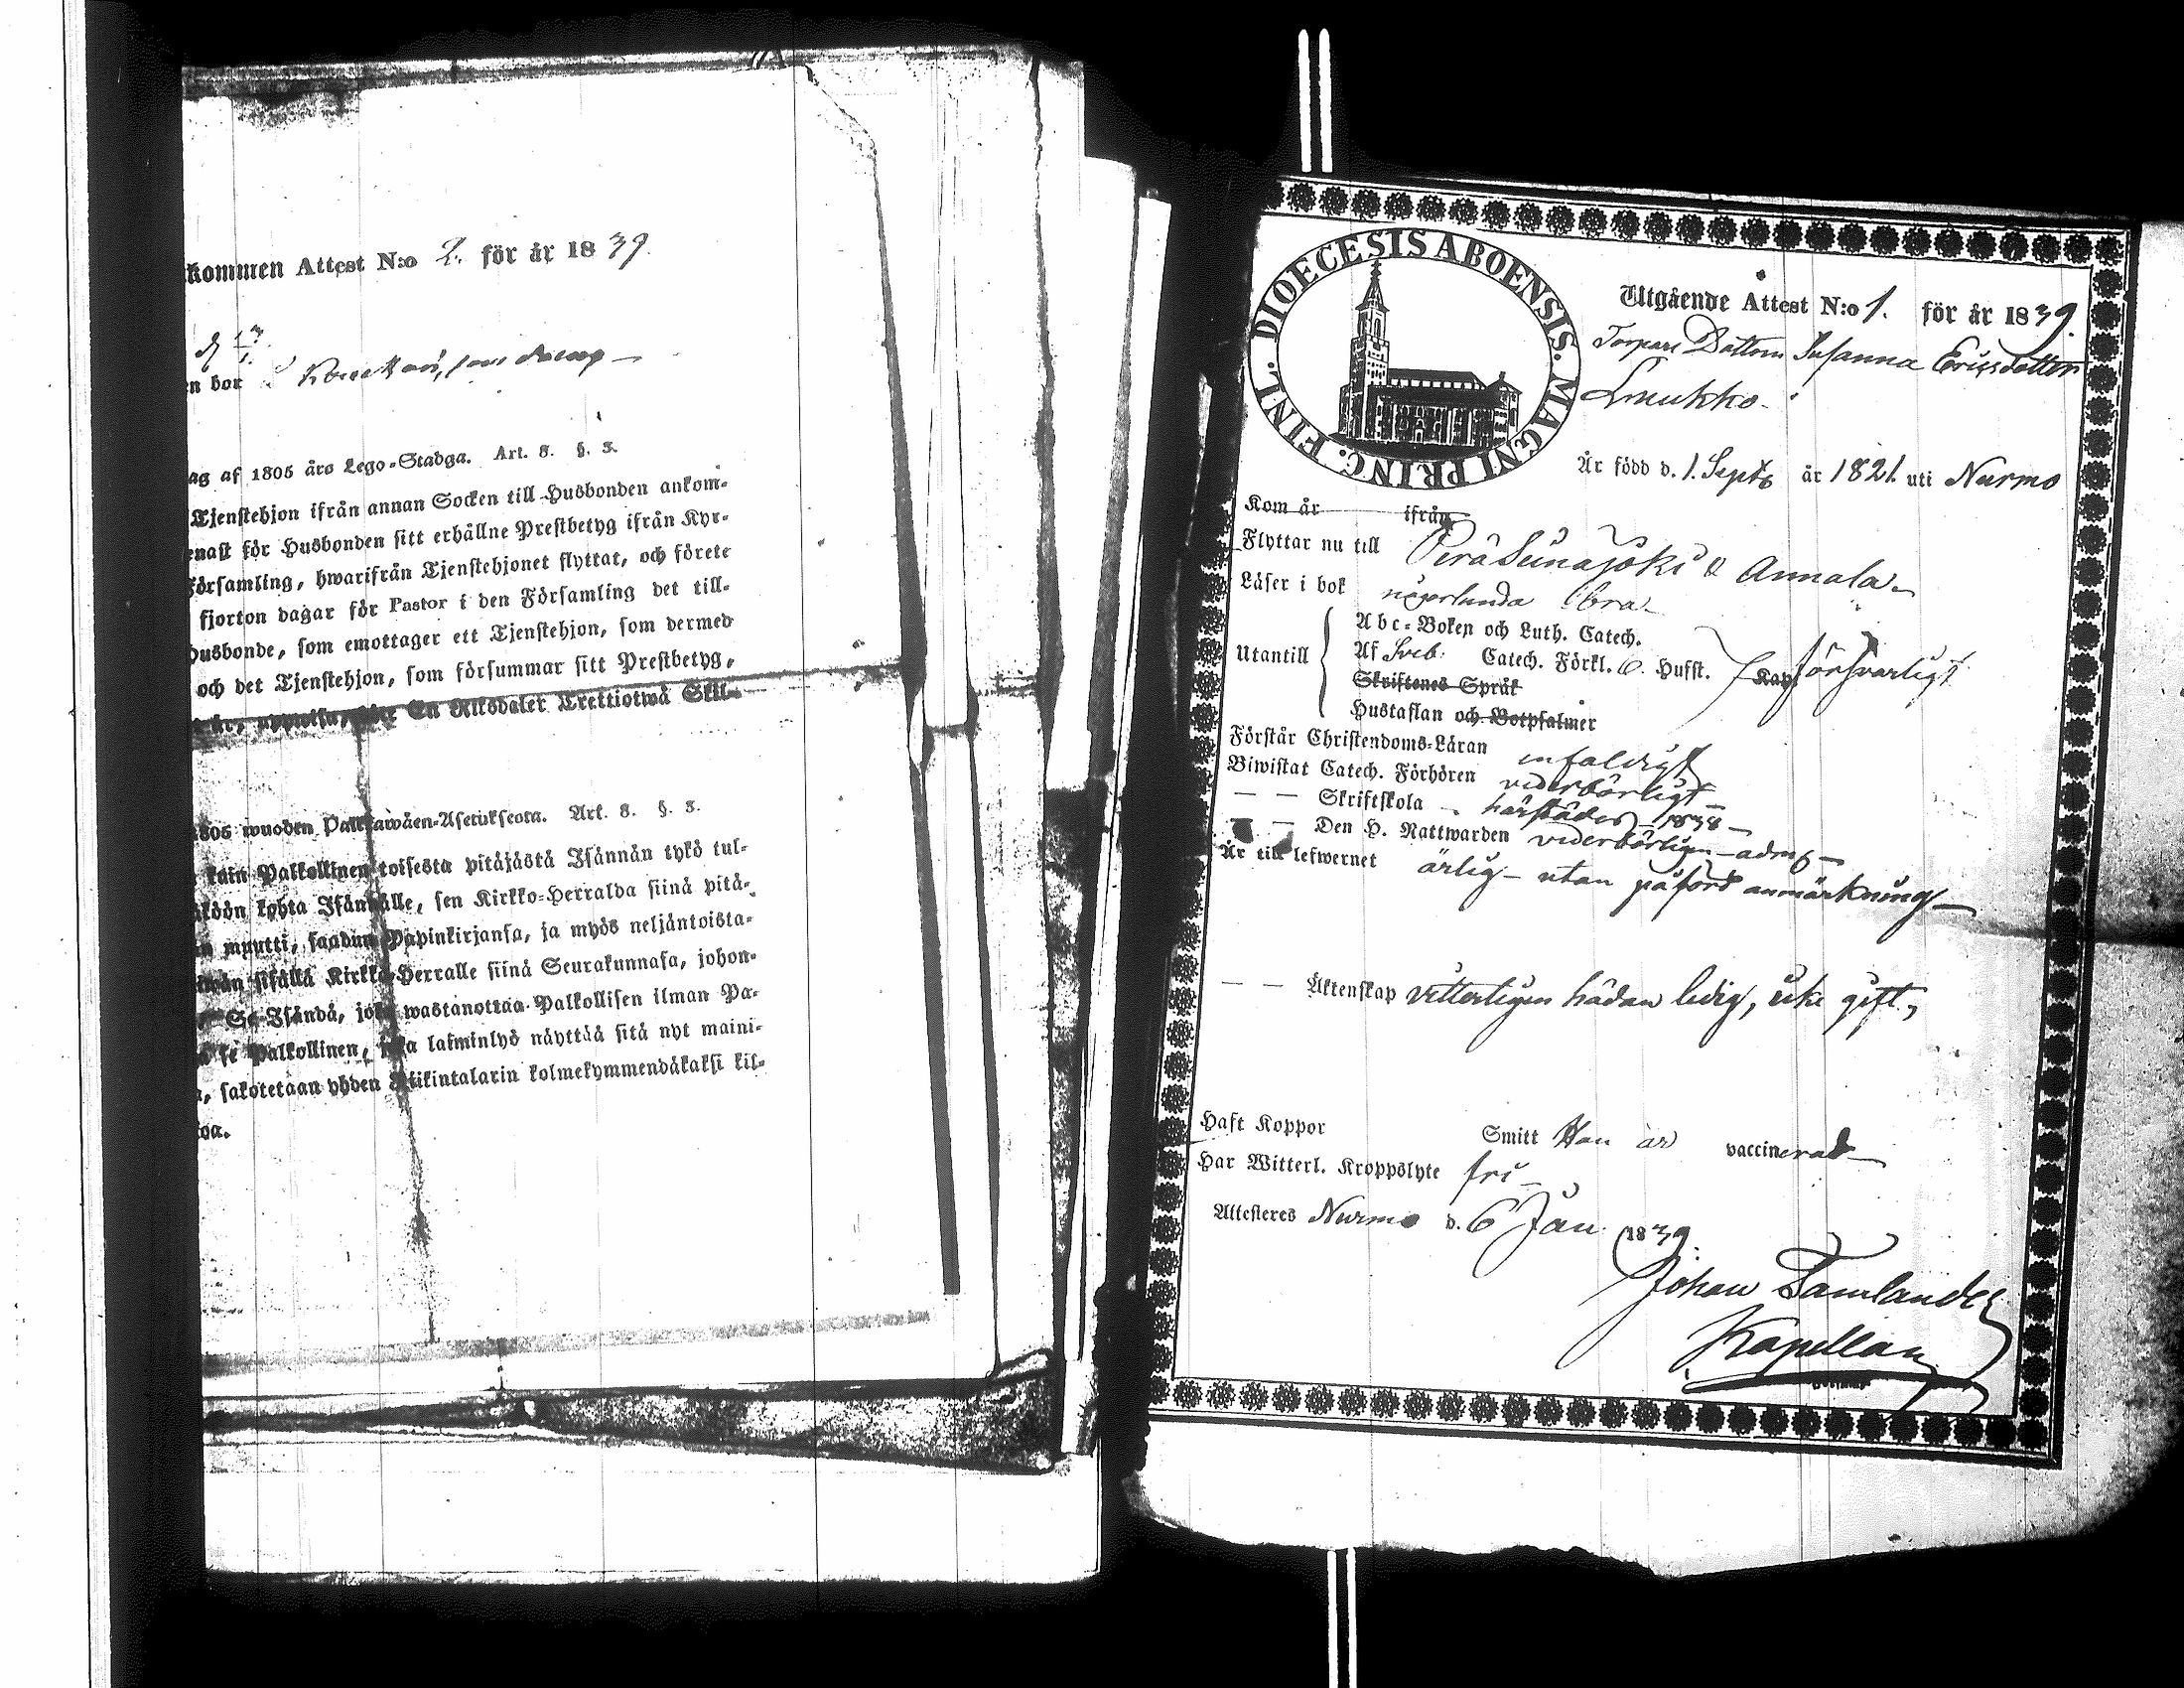 kommen Attest N:o 2. för år 1839.
d 13/1.
en bor
ag af 1805 års Lego-Stadga. Art. 8. §. 3.
Tjenstehjon ifrån annan Socken till Husbonden ankom-
enast för Husbonden sitt erhållne Prestbetyg ifrån Kyr-
Församling, hwarifrån Tjenstehjonet flyttat, och förete
fjorton dagar för Pastor i den Församling det till-
Husbonde, som emottager ett Tjenstehjon, som dermed
och det Tjenstehjon, som försummar sitt Prestbetyg,
En Riksdaler Trettiotwå Skil-
1805 wuoden Palkkawäen-Asetuksesta. Art. 8. §. 3.
kuin Palkollinen toisesta pitäjästä Isännän tykö tul-
köön kohta Isännälle, sen Kirkko-Herralda siinä pitä-
n muutti, saadun Papinkirjansa, ja myös neljäntoista-
wän sisällä Kirkko-Herralle siinä Seurakunnasa, johon-
Se Isändä, joka wastanottaa Palkollisen ilman Pa-
se Palkollinen, joka laiminlyö näyttää sitä nyt maini-
, sakotetaan yhden Riikintalarin kolmekymmendäkaksi kil-
DIOECESIS ABOENSIS. MAGNI PRINC. FINL.
Utgående Attest N:o 1. för år 1839.
Torpare Dottern Susanna Ericsdotter
Luukko.
Är född d. 1. Sept. år 1821. uti Nurmo
Kom år ifrån
Flyttar nu till Peräseinäjoki & Annala
Läser i bok någorlunda bra
Utantill
Abc-Boken och Luth. Catech.
Af Sveb. Catech. Förkl. 6. Hufst. Kap. försvarligt
Skriftenes Språk
Hustaflan och Botpsalmer
Förstår Christendoms-Läran enfaldigt
Biwistat Catech. Förhören vederbörligt
— — Skriftskola härstädes 1838
— — Den H. Nattwarden vederbörligen adm.
Är till lefwernet ärlig — utan påförd anmärkning
— — Äktenskap vetterligen hädan ledig, icke gift,
Haft Koppor Smitt Hon är vaccinerad
Har Witterl. Kroppslyte fri
Attesteres Nurmo d. 6 Jan. 1839.
Johan Tamlander
Kapellan